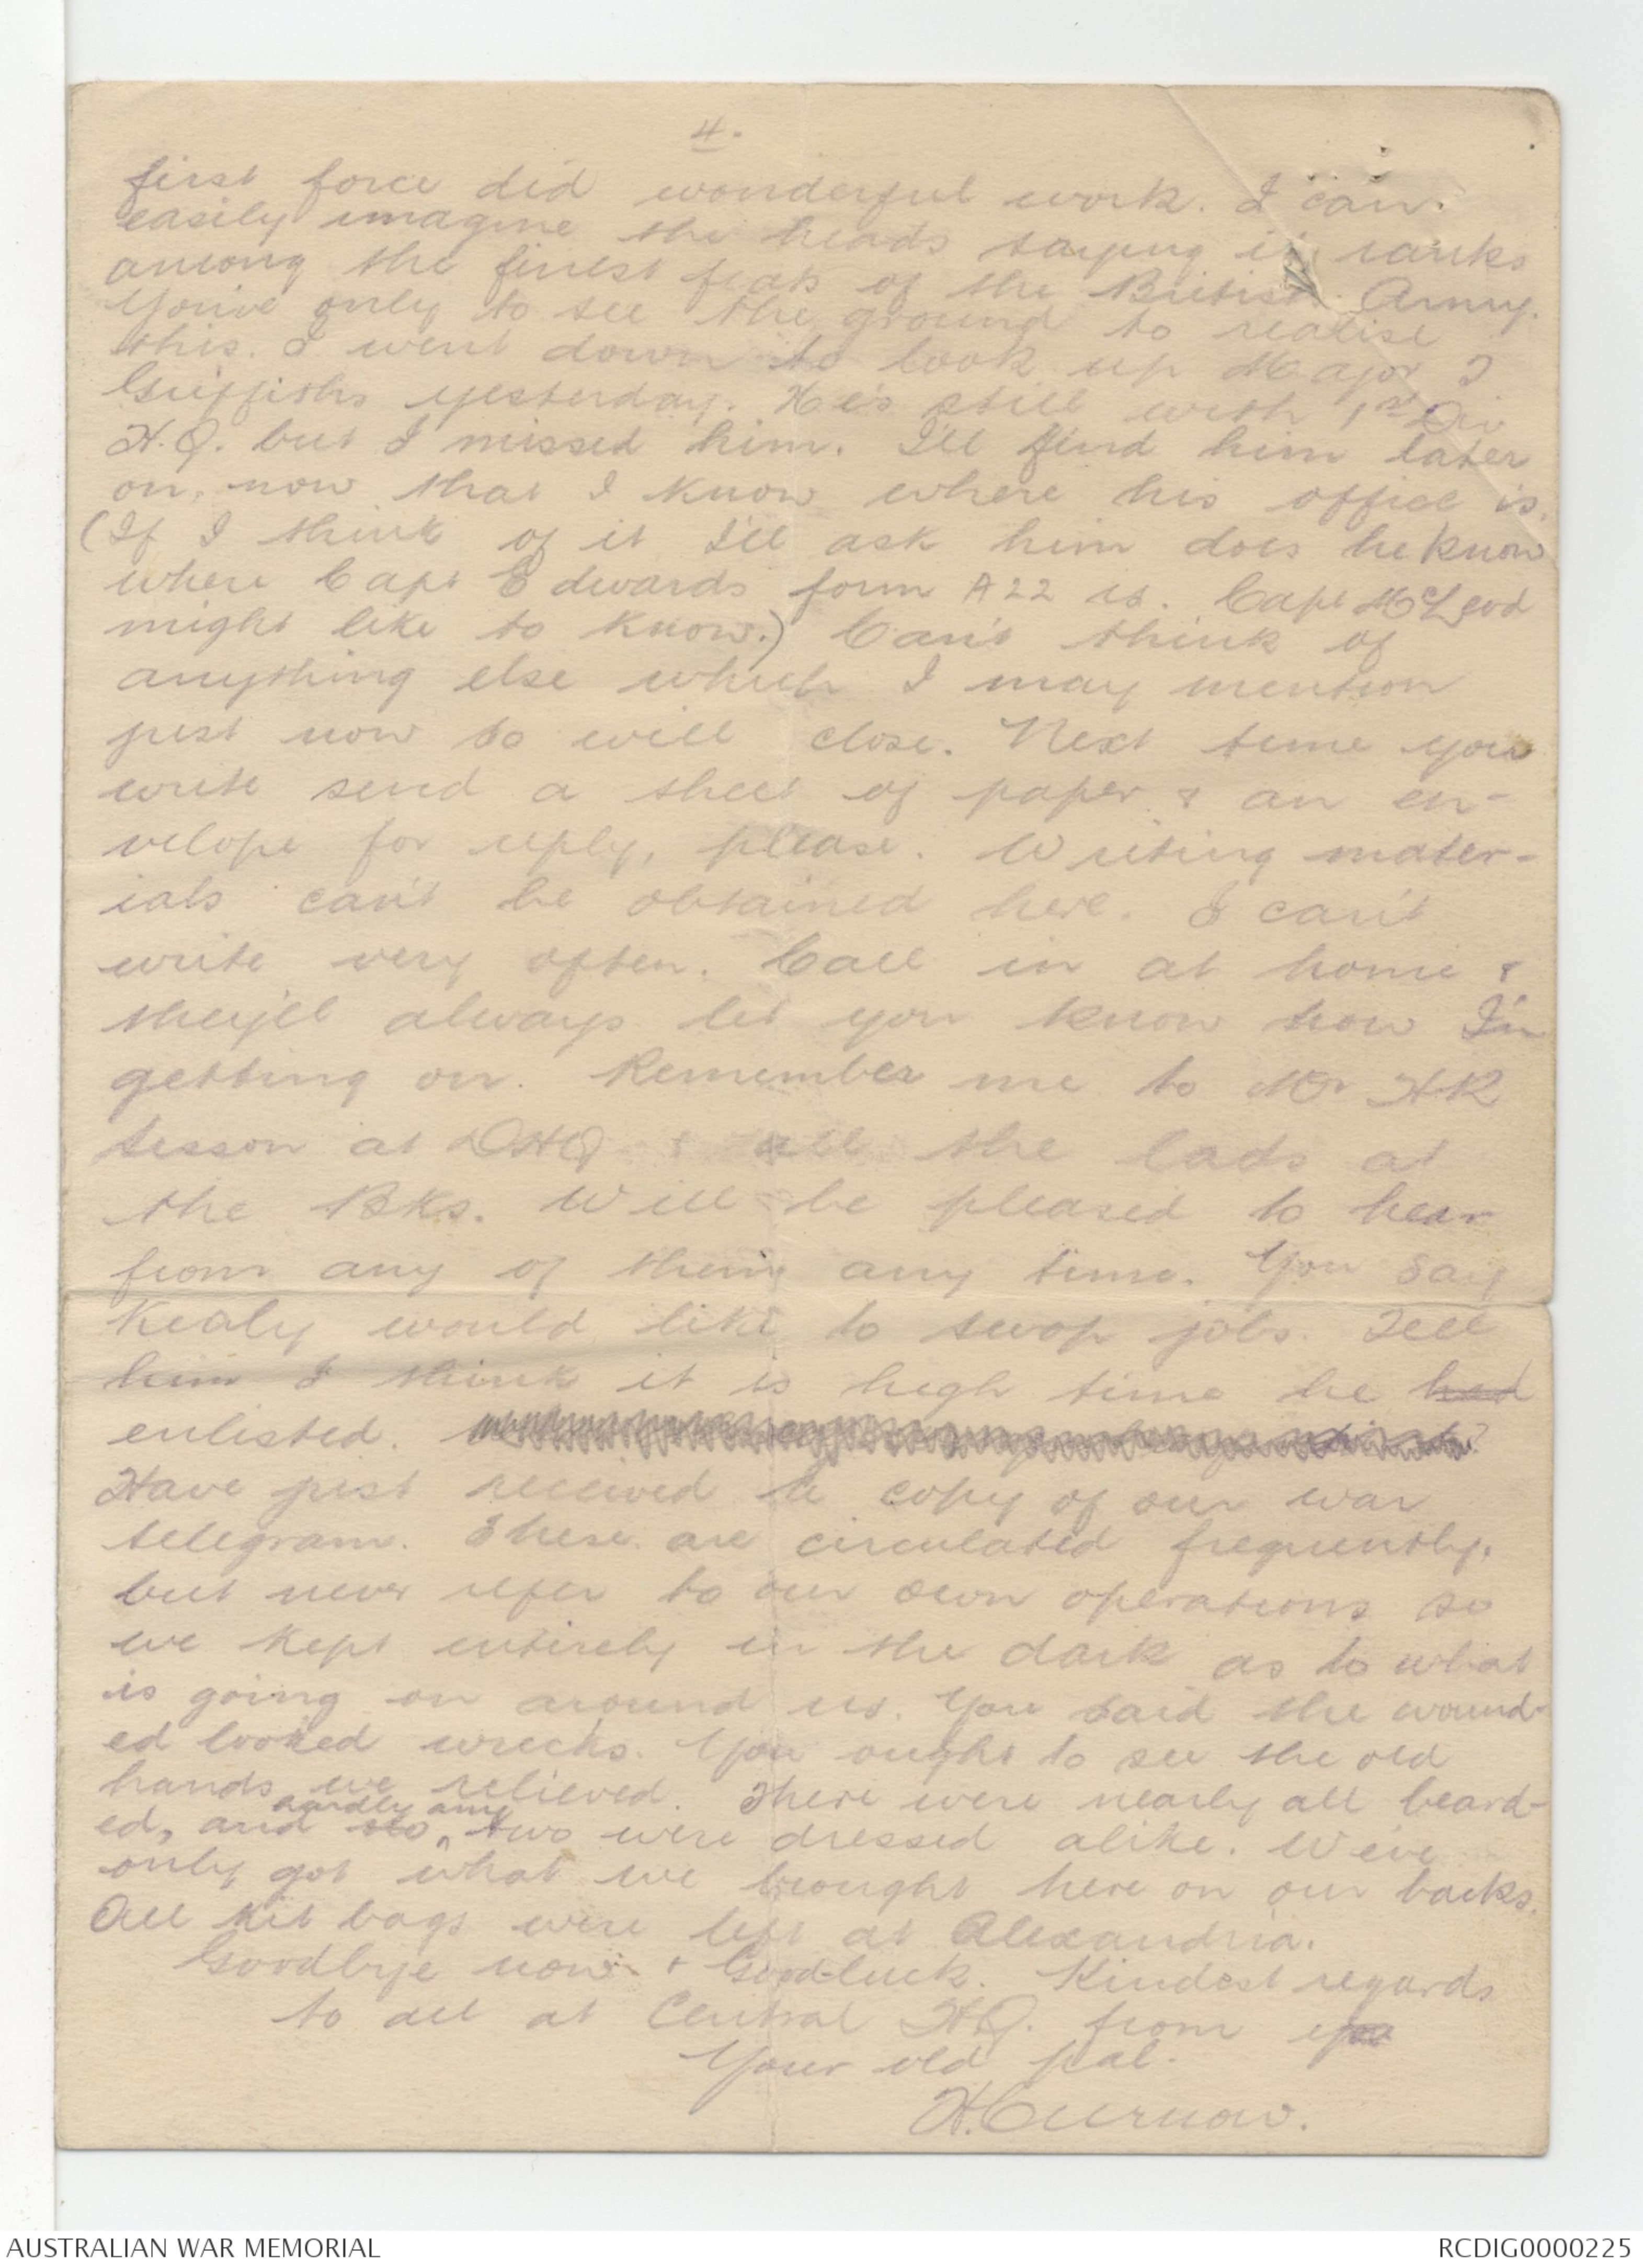 4.
first force did wonderful work. I can
easily imagine the heads saying it ranks
among the finest feats of the British Army.
You've only to see the ground to realise
this. I went down to look up Major T
Griffiths yesterday. He's still with 1st Div
H.Q. but I missed him. I'll find him later
on, now that I know where his office is.
(If I think of it I'll ask him does he know
where Capt Edwards form A22 is. Capt McLeod
might like to know.) Can't think of
anything else which I may mention
just now so will close. Next time you
write send a sheet of paper & an en-
velope for reply, please. Writing mater-
ials can't be obtained here. I can't
write very often. Call in at home &
they'll always let you know how I'm
getting on. Remember me to Mr HR
Sesson at DHQ & all the lads at
the Bks. Will be pleased to hear
from any of them any time. You say
Kealy would like to swop jobs. Tell
him I think it is high time he had
enlisted.
Have just received a copy of our war
telegram. These are circulated frequently,
but never refer to our own operations so
we kept entirely in the dark as to what
is going on around us. You said the wound-
ed looked wrecks. You ought to see the old
hands we relieved. There were nearly all beard-
ed, and no hardly any two were dressed alike. We've
only got what we brought here on our backs.
All kit bags were left at Alexandria.
Goodbye now & Good-luck. Kindest regards
to all at Central HQ. from
Your old pal.
H. Curnow.
AUSTRALIAN WAR MEMORIAL
RCDIG0000225